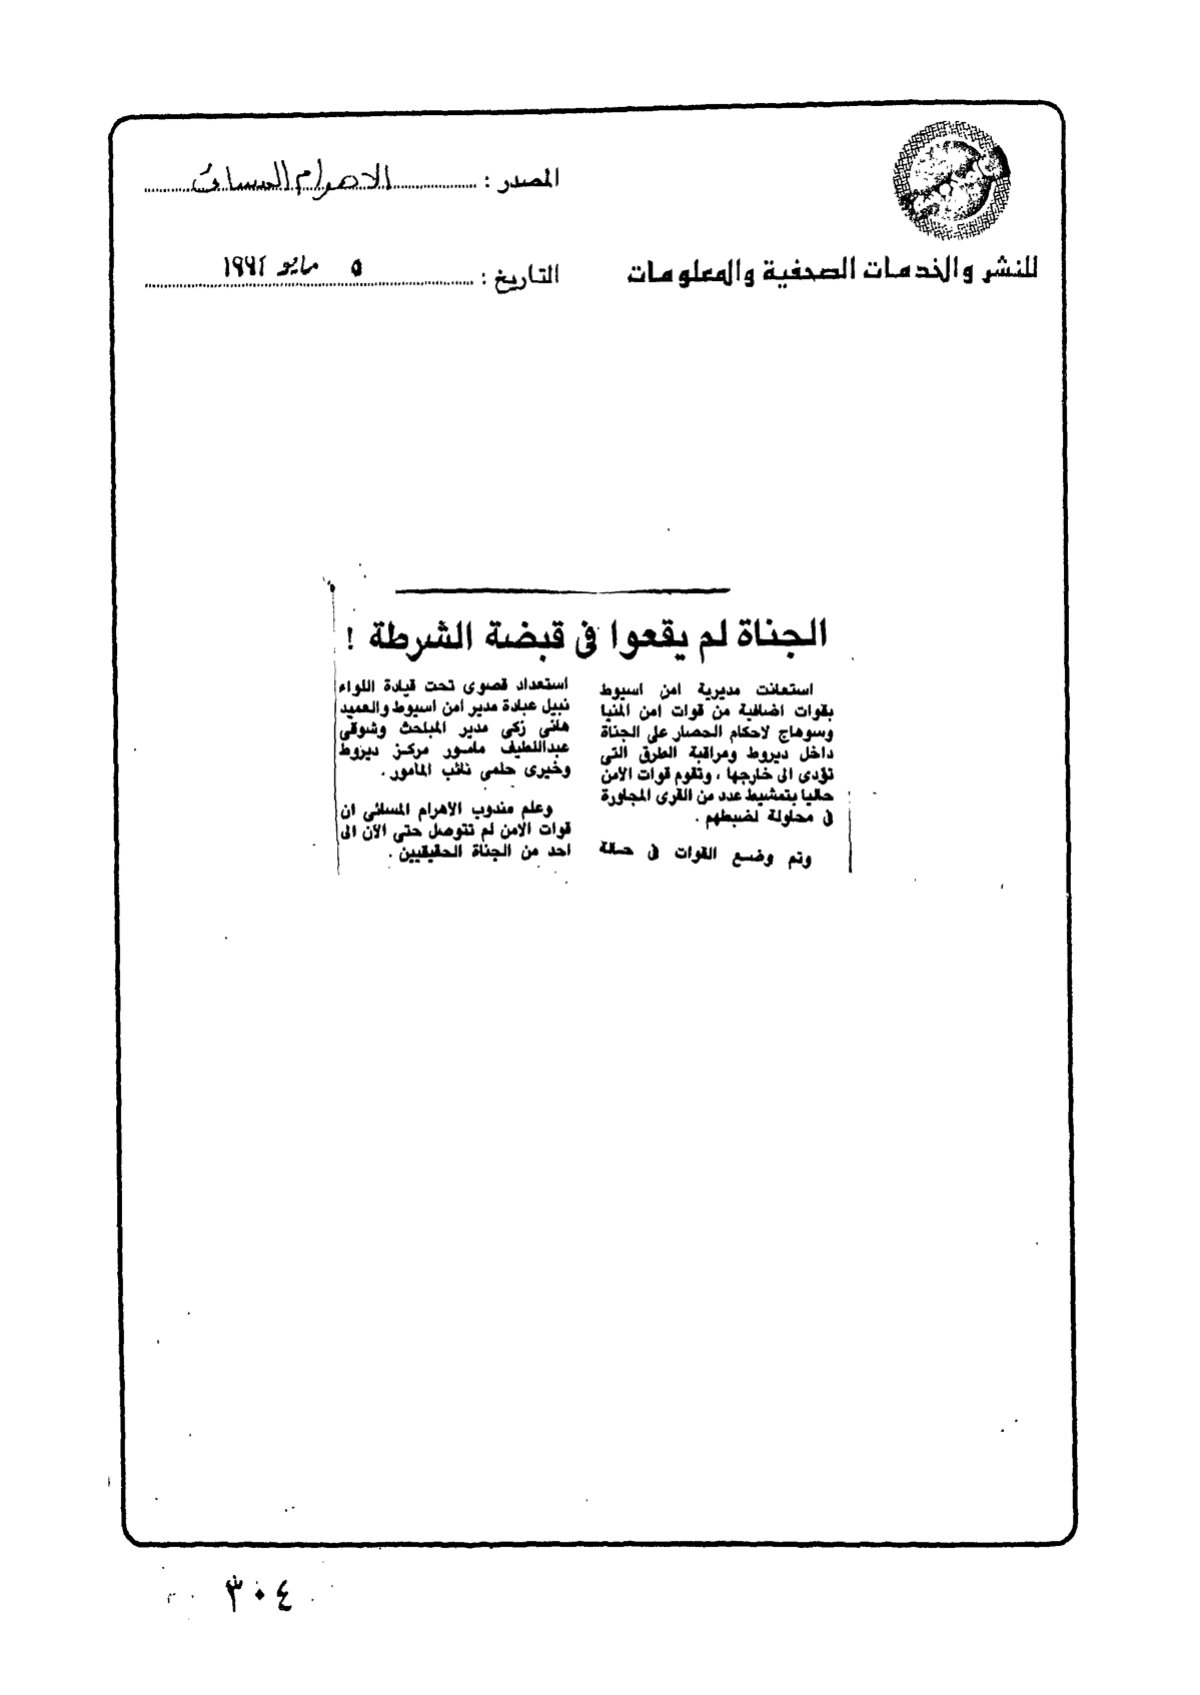 المصدر : الاهرام المسائى
للنشر والخدمات الصحفية والمعلومات
التاريخ : ٥ مايو ١٩٩٢
الجناة لم يقعوا فى قبضة الشرطة !
استعانت مديرية امن اسيوط
بقوات اضافية من قوات امن المنيا
وسوهاج لاحكام الحصار على الجناة
داخل ديروط ومراقبة الطرق التى
تؤدى الى خارجها ، وتقوم قوات الامن
حاليا بتمشيط عدد من القرى المجاورة
فى محاولة لضبطهم .
وتم وضع القوات فى حالة
استعداد قصوى تحت قيادة اللواء
نبيل عبادة مدير امن اسيوط والعميد
هانى زكى مدير المباحث وشوقى
عبداللطيف مامور مركز ديروط
وخيرى حلمى نائب المامور .
وعلم مندوب الاهرام المسائى ان
قوات الامن لم تتوصل حتى الآن الى
احد من الجناة الحقيقيين .
٣٠٤